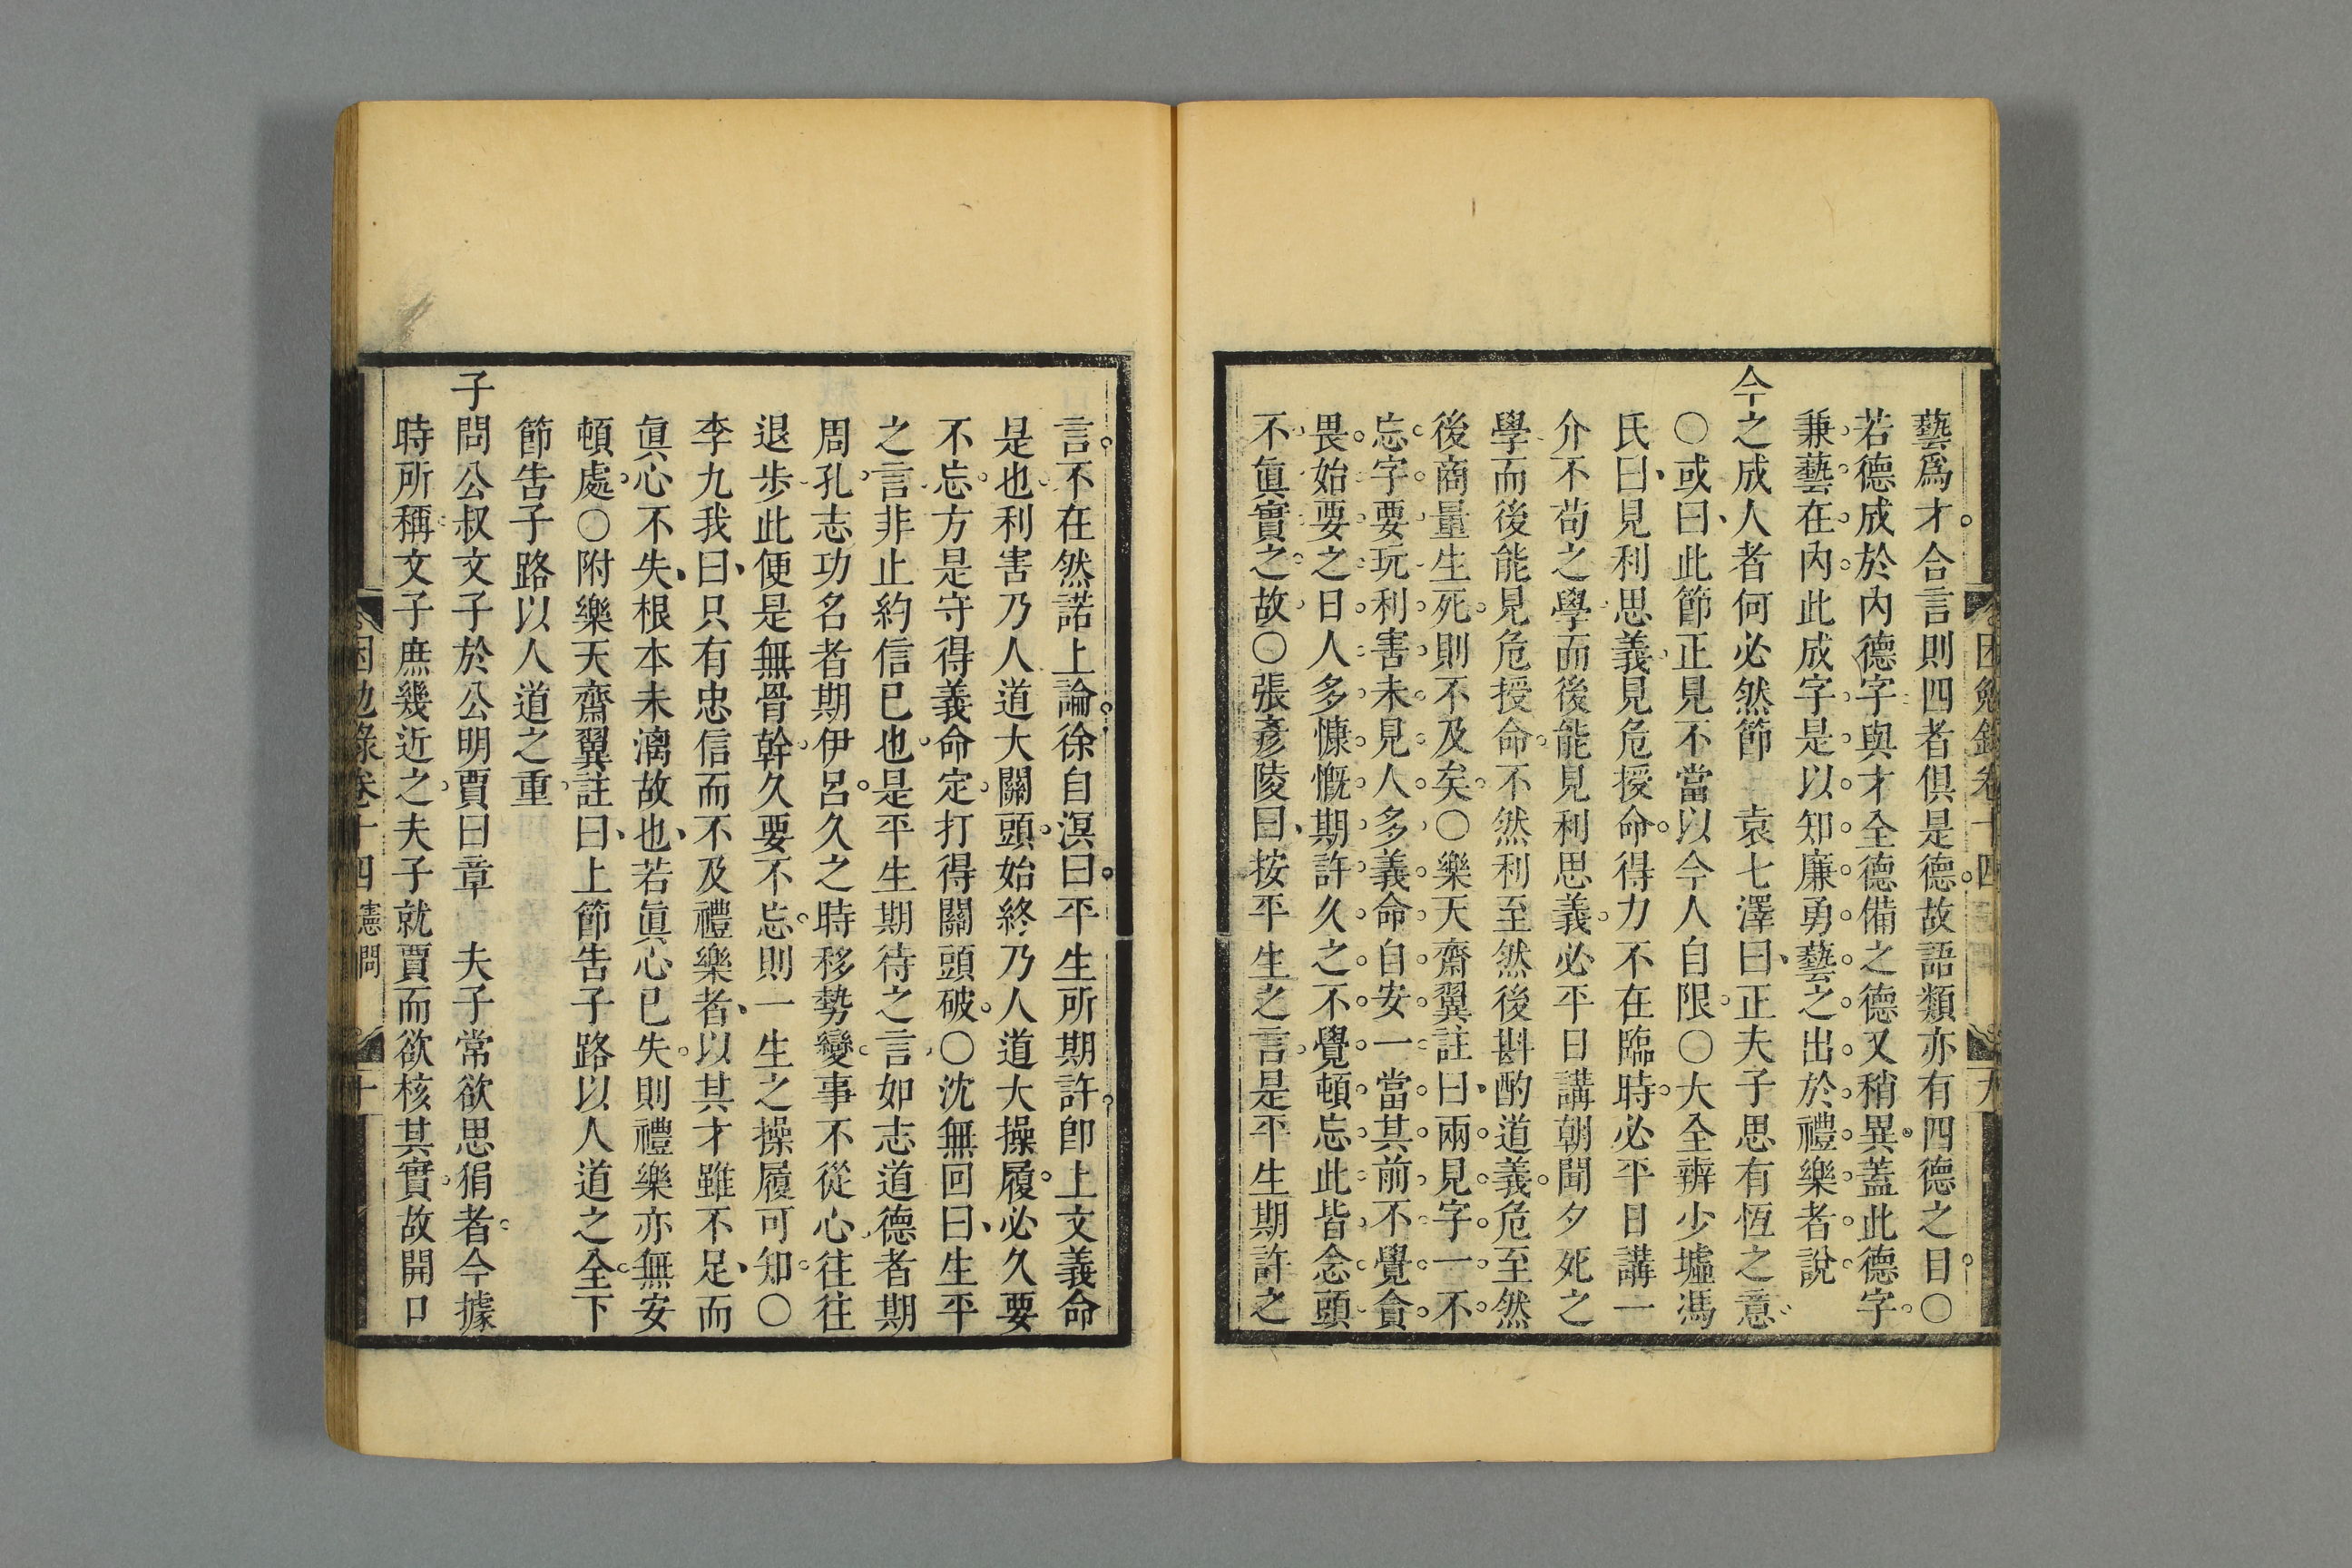 困勉錄卷十四
九
藝爲才合言則四者俱是德故語類亦有四德之目〇
若德成於內德字與才全德備之德又稍異蓋此德字
兼藝在內此成字是以知廉勇藝之出於禮樂者說
今之成人者何必然節 袁七澤曰正夫子思有恆之意
〇或曰此節正見不當以今人自限〇大全辨少墟馮
氏曰見利思義見危授命得力不在臨時必平日講一
介不苟之學而後能見利思義必平日講朝聞夕死之
學而後能見危授命不然利至然後斟酌道義危至然
後商量生死則不及矣〇樂天齋翼註曰兩見字一不
忘字要玩利害未見人多義命自安一當其前不覺貪
畏始要之日人多慷慨期許久之不覺頓忘此皆念頭
不眞實之故〇張彥陵曰按平生之言是平生期許之
言不在然諾上論徐自溟曰平生所期許卽上文義命
是也利害乃人道大關頭始終乃人道大操履必久要
不忘方是守得義命定打得關頭破〇沈無回曰生平
之言非止約信已也是平生期待之言如志道德者期
周孔志功名者期伊呂久之時移勢變事不從心往往
退步此便是無骨幹久要不忘則一生之操履可知〇
李九我曰只有忠信而不及禮樂者以其才雖不足而
眞心不失根本未漓故也若眞心已失則禮樂亦無安
頓處〇附樂天齋翼註曰上節告子路以人道之全下
節告子路以人道之重
子問公叔文子於公明賈曰章 夫子常欲思狷者今據
時所稱文子庶幾近之夫子就賈而欲核其實故開口
困勉錄卷十四 憲問
十